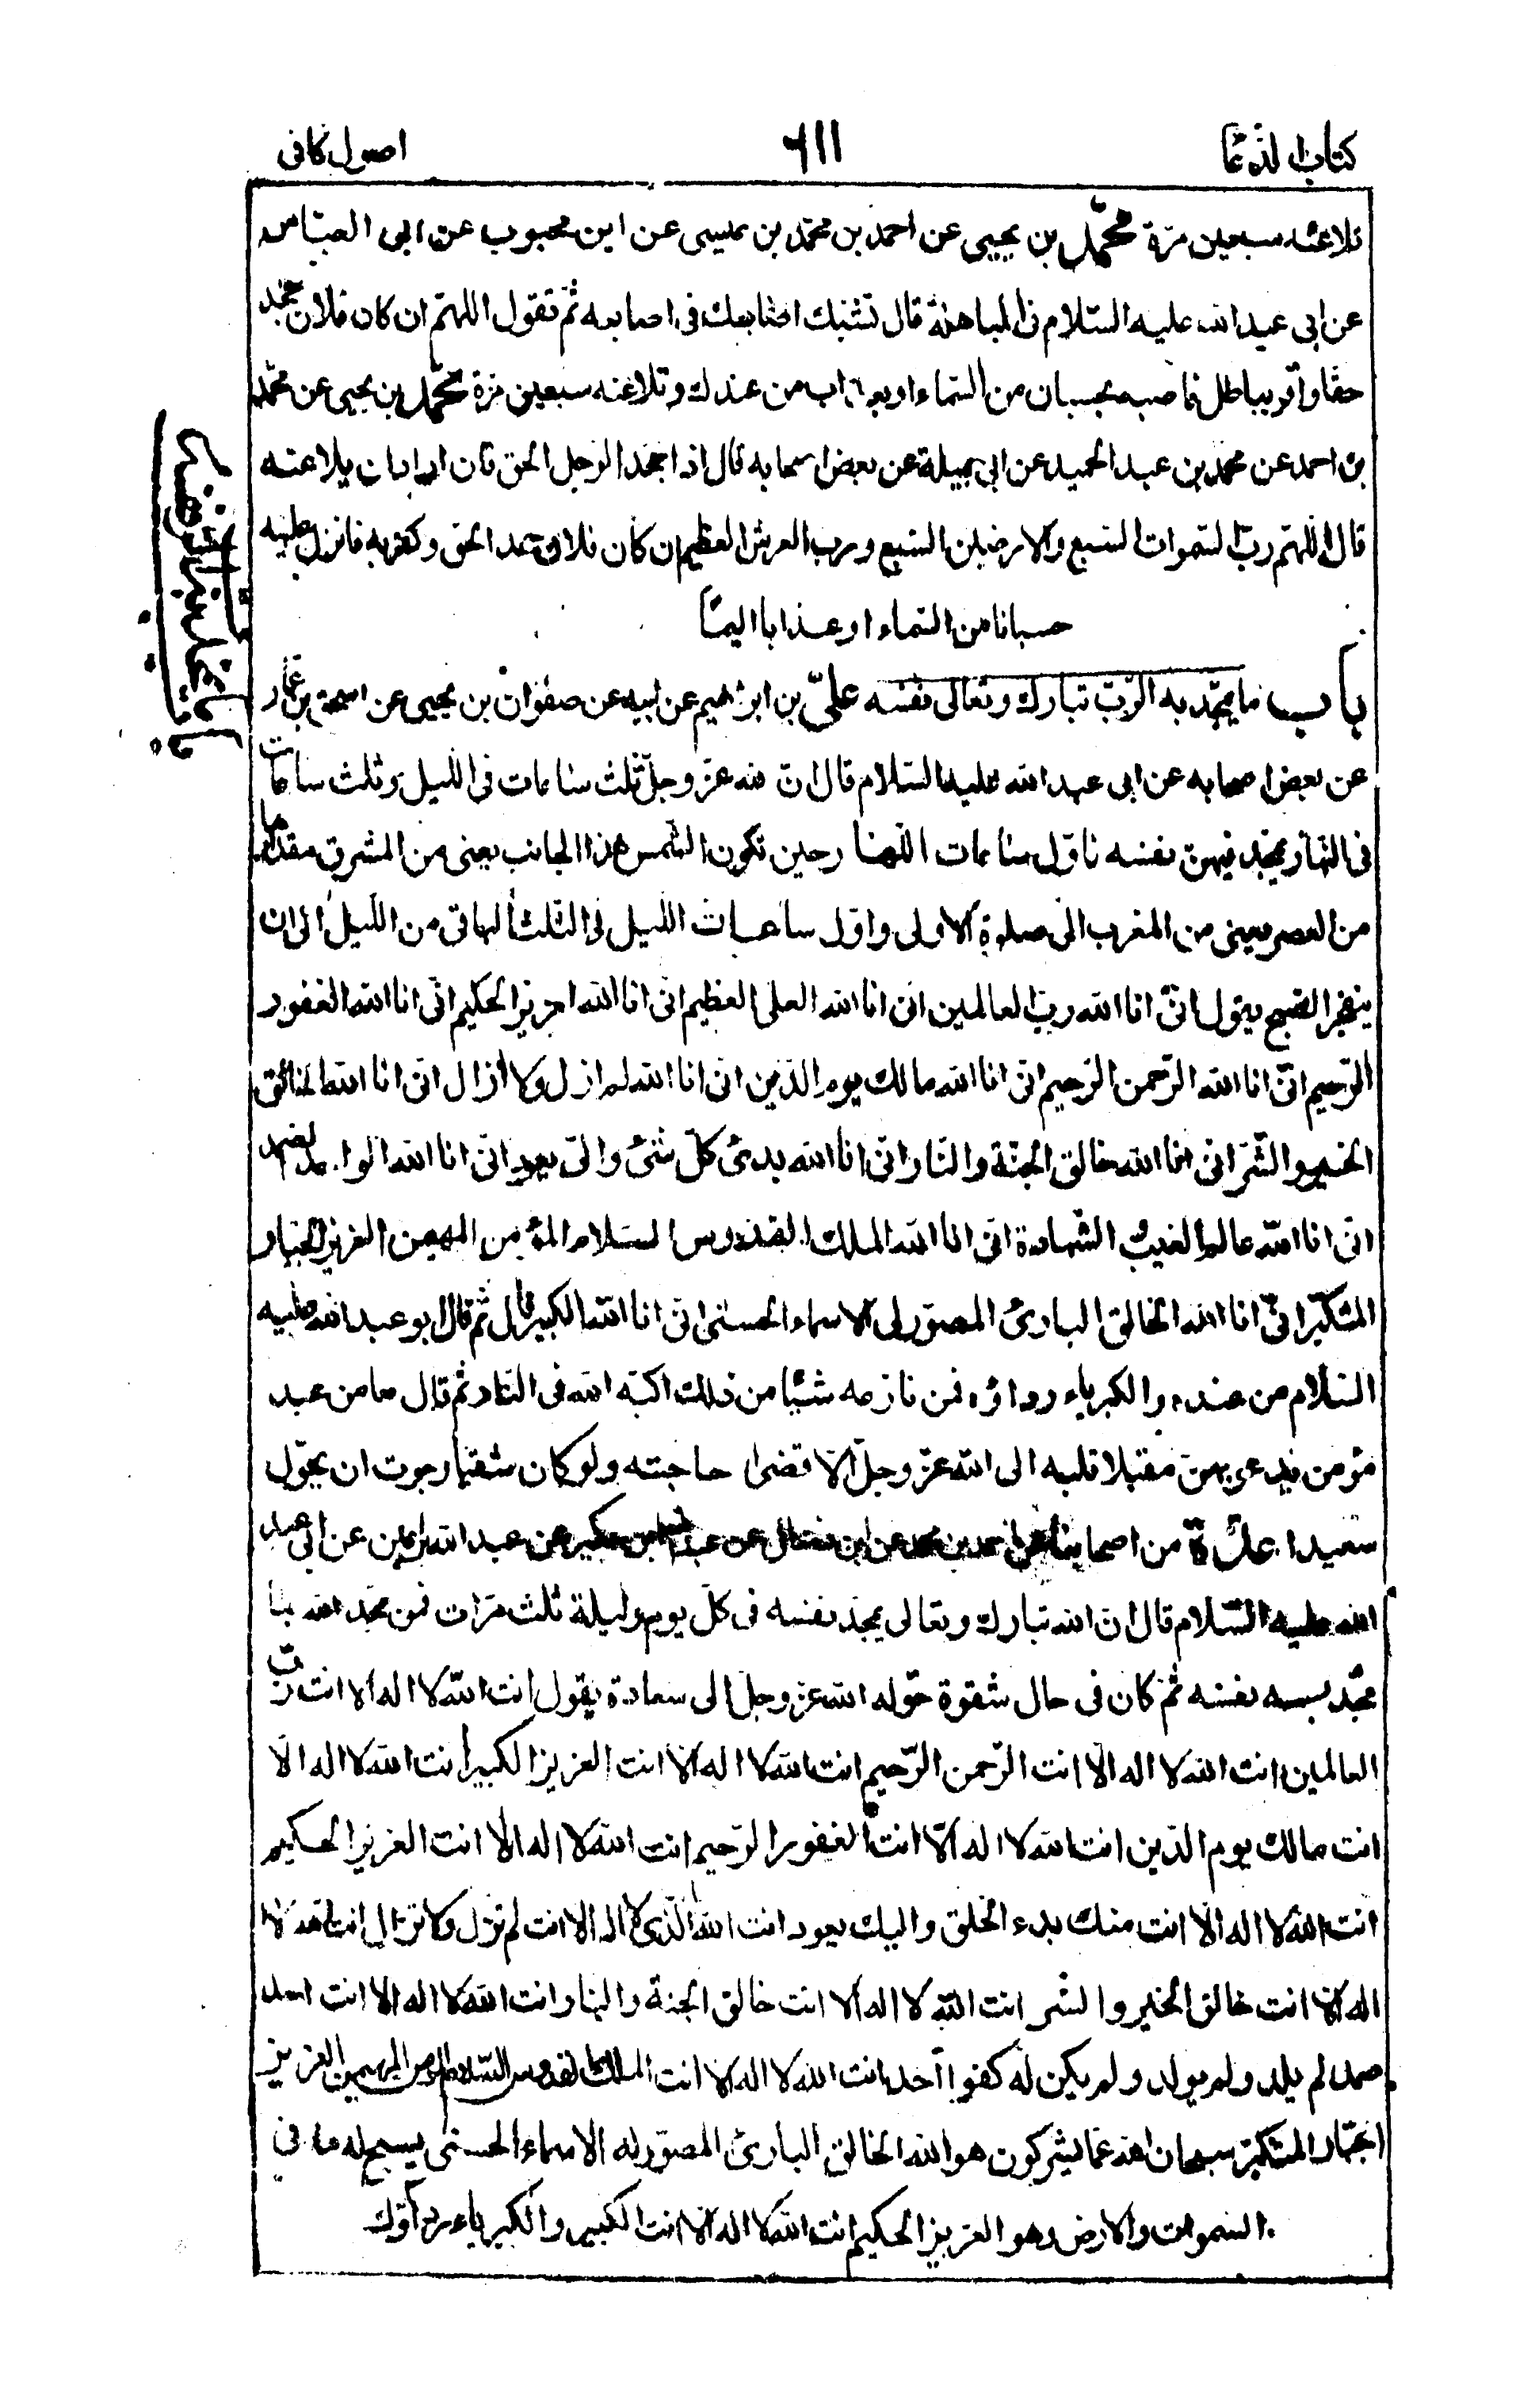 كتاب الدعا
٦١١
اصول كافى
تلاعنه سبعين مرّة محمّد بن يحيى عن احمد بن محمّد بن عيسى عن ابن محبوب عن ابى العبّاس
عن ابى عبد الله عليه السّلام فى المباهلة قال تشبك اصابعك فى اصابعه ثمّ تقول اللهمّ ان كان فلان جحد
حقّا واقر بباطل فاصبه بحسبان من السّماء او بعذاب من عندك وتلاعنه سبعين مرّة محمّد بن يحيى عن محمّد
بن احمد عن محمد بن عبد الحميد عن ابى جميلة عن بعض اصحابه قال اذا جحد الرجل الحق فان اراد ان يلاعنه
قال اللهمّ ربّ السّموات السّبع والارضين السّبع وربّ العرش العظيم ان كان فلان جحد الحق وكفر به فانزل عليه
حسبانا من السّماء او عذابا اليمًا
باب ما يمجّد به الرّبّ تبارك وتعالى نفسه علىّ بن ابرٰهيم عن ابيه عن صفوان بن يحيى عن اسحق بن عمّار
عن بعض اصحابه عن ابى عبد الله عليه السّلام قال انّ لله عزّ وجلّ ثلث ساعات فى اللّيل وثلث ساعات
فى النّهار يمجّد فيهنّ نفسه فاوّل ساعات النّهار حين تكون الشّمس هذا الجانب يعنى من المشرق مقدارها
من العصر يعنى من المغرب الى صلوة الاولى واوّل ساعات اللّيل فى الثّلث الباقى من اللّيل الى ان
ينفجر الصّبح يقول انّى انا الله ربّ العالمين انى انا الله العلى العظيم انّى انا الله العزيز الحكيم انّى انا الله الغفور
الرّحيم انّى انا الله الرّحمن الرّحيم انّى انا الله مالك يوم الدّين انى انا الله لم ازل ولا ازال انّى انا الله الخالق
الخير والشّرّ انّى انا الله خالق الجنّة والنّار انّى انا الله بدئ كلّ شئ والىّ يعود انّى انا الله الواحد الصّمد
انّى انا الله عالم الغيب الشّهادة انّى انا الله الملك القدّوس السّلام المؤمن المهيمن العزيز الجبّار
المتكبّر انّى انا الله الخالق البارئ المصوّر لى الاسماء الحسنى انّى انا الله الكبير قال ثمّ قال ابو عبد الله عليه
السّلام من عنده والكبرياء رداؤه فمن نازعه شيئا من ذلك اكبّه الله فى النّار ثمّ قال ما من عبد
مؤمن يدعو بهنّ مقبلا قلبه الى الله عزّ وجلّ الّا قضى حاجته ولو كان شقيّا رجوت ان يحوّل
سعيدا عدّة من اصحابنا عن احمد بن محمد عن ابن فضال عن عبد الله بن بكير عن عبد الله بن اعين عن ابى عبد
الله عليه السّلام قال انّ الله تبارك وتعالى يمجّد نفسه فى كلّ يوم وليلة ثلث مرّات فمن مجّد الله بما
مجّد به نفسه ثمّ كان فى حال شقوة حوّله الله عزّ وجلّ الى سعادة يقول انت الله لا اله الا انت ربّ
العالمين انت الله لا اله الّا انت الرّحمن الرّحيم انت الله لا اله الّا انت العزيز الكبير انت الله لا اله الّا
انت مالك يوم الدّين انت الله لا اله الّا انت الغفور الرّحيم انت الله لا اله الّا انت العزيز الحكيم
انت الله لا اله الّا انت منك بدء الخلق واليك يعود انت الله الّذى لا اله الا انت لم تزل ولا تزال انت الله لا
اله الّا انت خالق الخير والشّر انت الله لا اله الا انت خالق الجنة والنار انت الله لا اله الا انت احد
صمد لم يلد ولم يولد ولم يكن له كفوا احد انت الله لا اله الا انت الملك القدوس السّلام المؤمن المهيمن العزيز
الجبّار المتكبّر سبحان الله عمّا يشركون هو الله الخالق البارئ المصوّر له الاسماء الحسنى يسبح له ما فى
السموات والارض وهو العزيز الحكيم انت الله لا اله الّا انت الكبير والكبرياء رداؤك